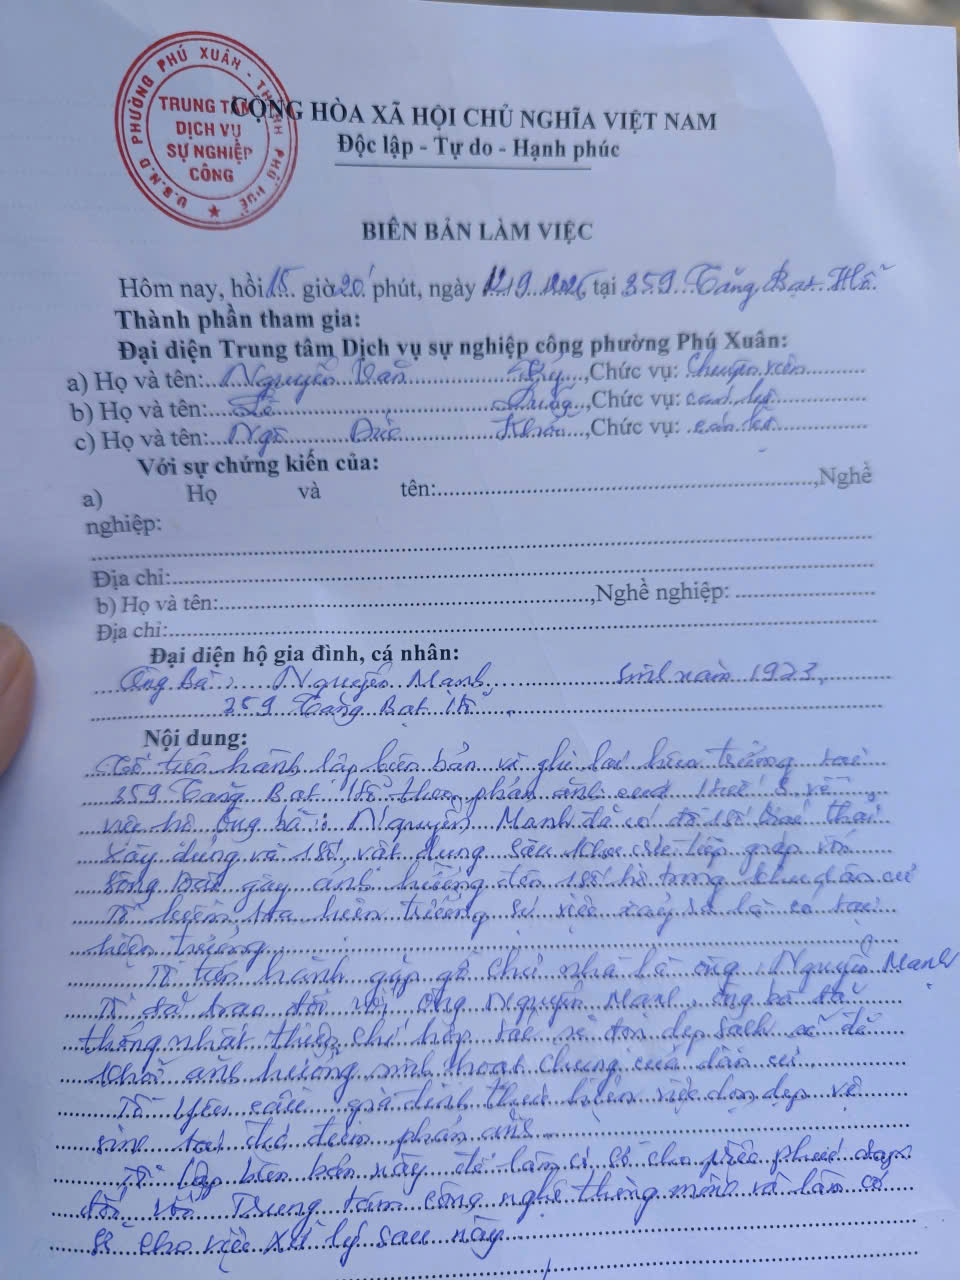 U.B.N.D PHƯỜNG PHÚ XUÂN - THÀNH PHỐ HUẾ
TRUNG TÂM
DỊCH VỤ
SỰ NGHIỆP
CÔNG
CỘNG HÒA XÃ HỘI CHỦ NGHĨA VIỆT NAM
Độc lập - Tự do - Hạnh phúc
BIÊN BẢN LÀM VIỆC
Hôm nay, hồi 15 giờ 20' phút, ngày tại 359 Tăng Bạt Hổ
Thành phần tham gia:
Đại diện Trung tâm Dịch vụ sự nghiệp công phường Phú Xuân:
a) Họ và tên: Nguyễn Văn ,Chức vụ: Chuyên viên
b) Họ và tên: Lê ,Chức vụ: cán bộ
c) Họ và tên: Ngô Đức ,Chức vụ: cán bộ
Với sự chứng kiến của:
a) Họ và tên: ,Nghề
nghiệp:
Địa chỉ:
b) Họ và tên: ,Nghề nghiệp:
Địa chỉ:
Đại diện hộ gia đình, cá nhân:
Ông Bà: Nguyễn Mạnh, sinh năm 1923,
359 Tăng Bạt Hổ.
Nội dung:
Tổ tiến hành lập biên bản và ghi lại hiện trường tại
359 Tăng Bạt Hổ theo phản ánh về
hộ ông bà: Nguyễn Mạnh đã có đổ 1 số thải
xây dựng và 1 số vật dụng
sông gây ảnh hưởng đến 1 số hộ trong khu dân cư
Tổ kiểm tra hiện trường sự việc xảy ra là có tại
hiện trường
Tổ tiến hành gặp gỡ chủ nhà là ông Nguyễn Mạnh
Tổ đã trao đổi với ông Nguyễn Mạnh, ông bà đã
thống nhất thiện chí hợp tác sẽ dọn dẹp sạch sẽ để
khỏi ảnh hưởng sinh hoạt chung của dân cư.
Tổ yêu cầu gia đình thực hiện việc dọn dẹp vệ
sinh tại địa điểm phản ánh
Tổ lập biên bản này để làm cơ sở cho việc phúc đáp
đối với Trung tâm công nghệ thông minh và làm cơ
sở cho việc xử lý sau này